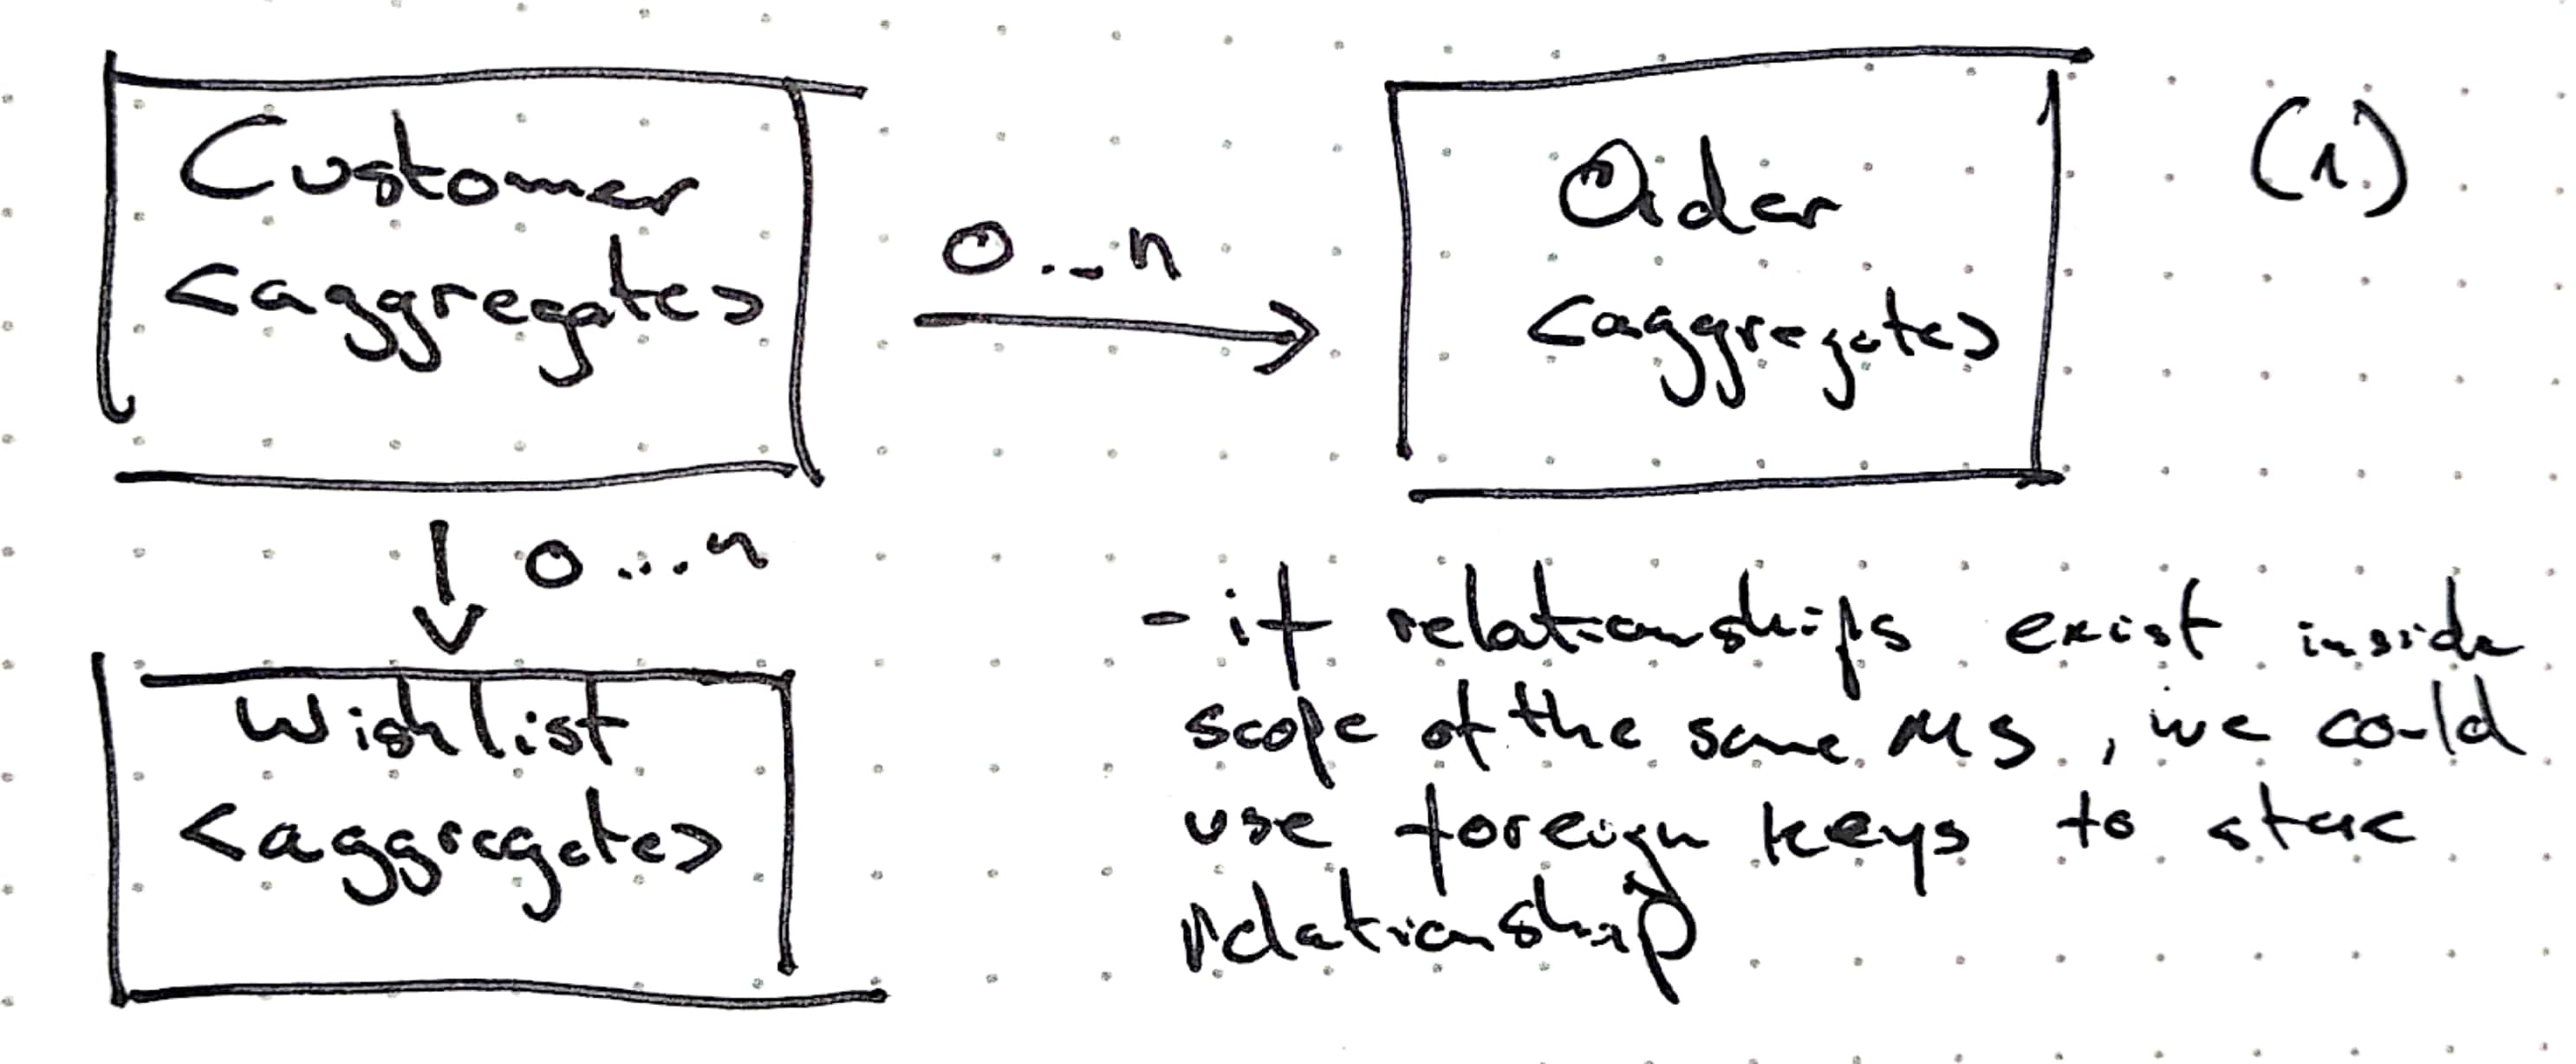 Customer
<aggregate>
0...n
Order
<aggregate>
(1.)
0...n
Wishlist
<aggregate>
- if relationships exist inside
scope of the same MS, we could
use foreign keys to store
relationship